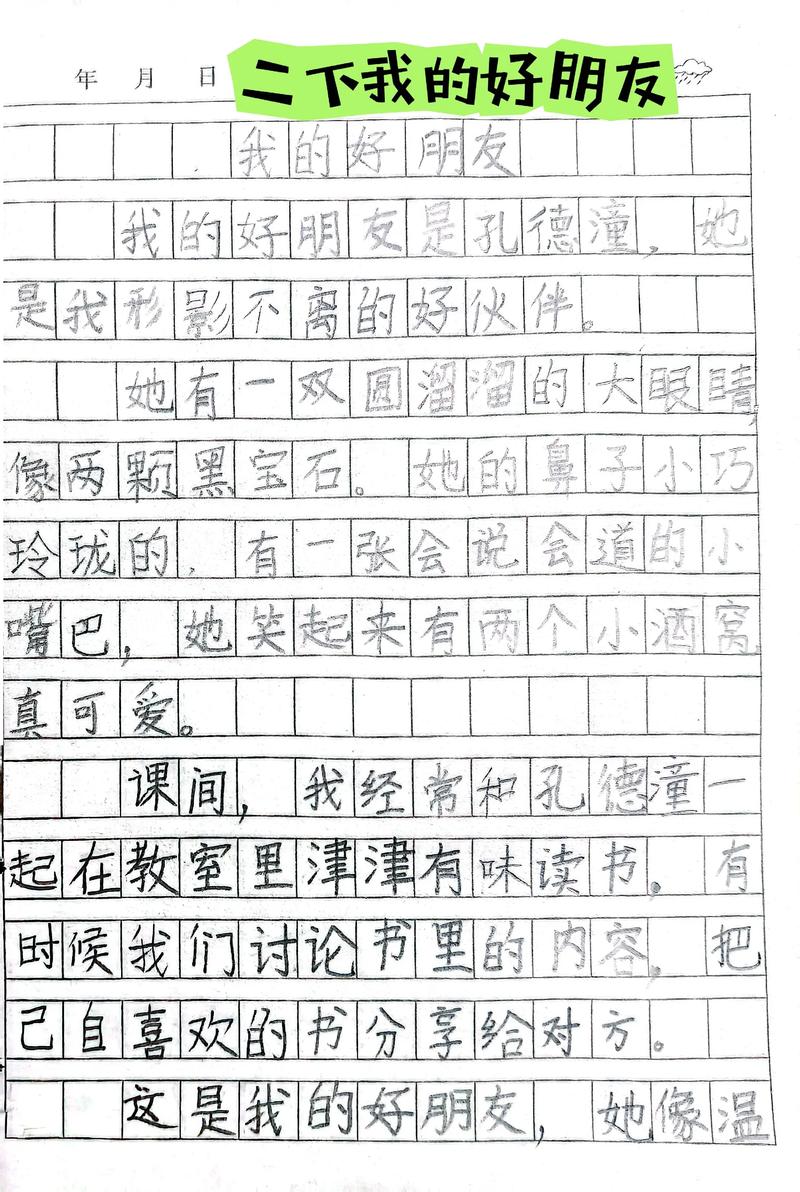 年 月 日 二下我的好朋友
我的好朋友
我的好朋友是孔德潼，她
是我形影不离的好伙伴。
她有一双圆溜溜的大眼睛，
像两颗黑宝石。她的鼻子小巧
玲珑的，有一张会说会道的小
嘴巴，她笑起来有两个小酒窝
真可爱。
课间，我经常和孔德潼一
起在教室里津津有味读书。有
时候我们讨论书里的内容，把
己自喜欢的书分享给对方。
这是我的好朋友，她像温